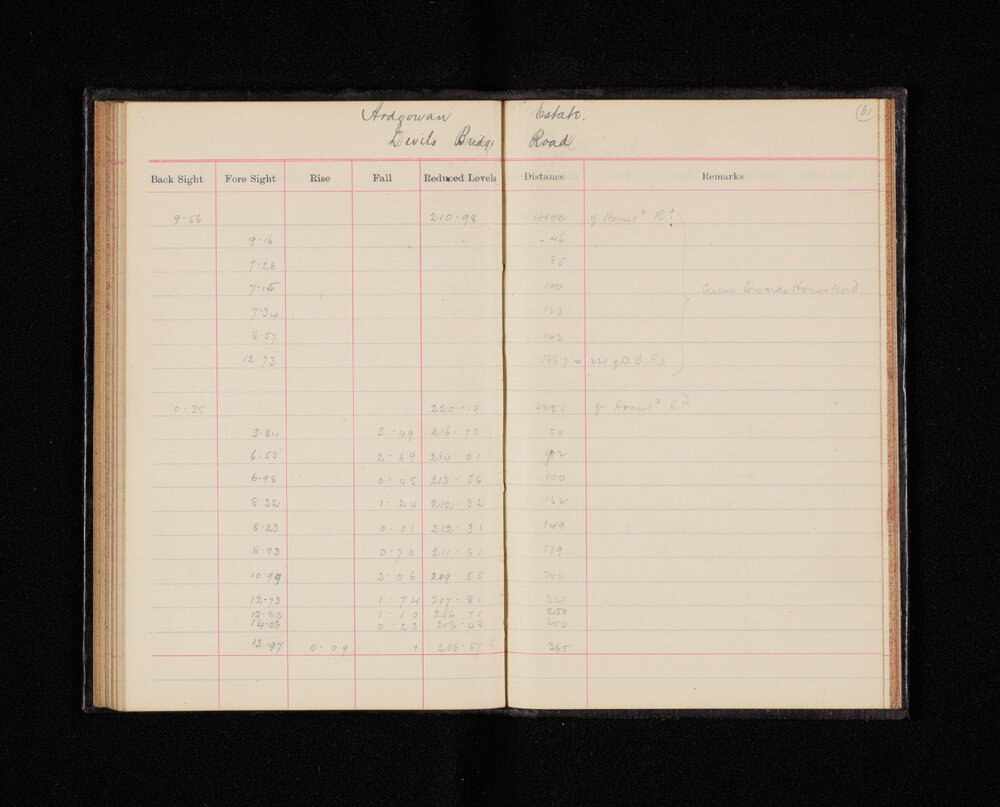 Ardgowan Estate. 61
Devils Bridge Road
Back Sight Fore Sight Rise Fall Reduced Levels Distance Remarks
9.66 210.98 4100 of Homsd Rd
9.16 46
7.28 85
7.15 100 Curve towards Homestead
7.34 123
8.57 143
12.73 186.7 = 221 of D.B. Rd
0.35 220.19 of Homsd Rd
3.84 3.49 216.70 50
6.53 2.69 214.01 92
6.98 0.45 213.56 100
8.22 1.24 212.32 122
8.23 0.01 212.31 149
8.93 0.70 211.61 179
10.99 2.06 209.55 200
12.73 1.74 207.81 221
13.83 1.10 206.71 250
14.06 0.23 206.48 300
13.97 0.09 206.57 365